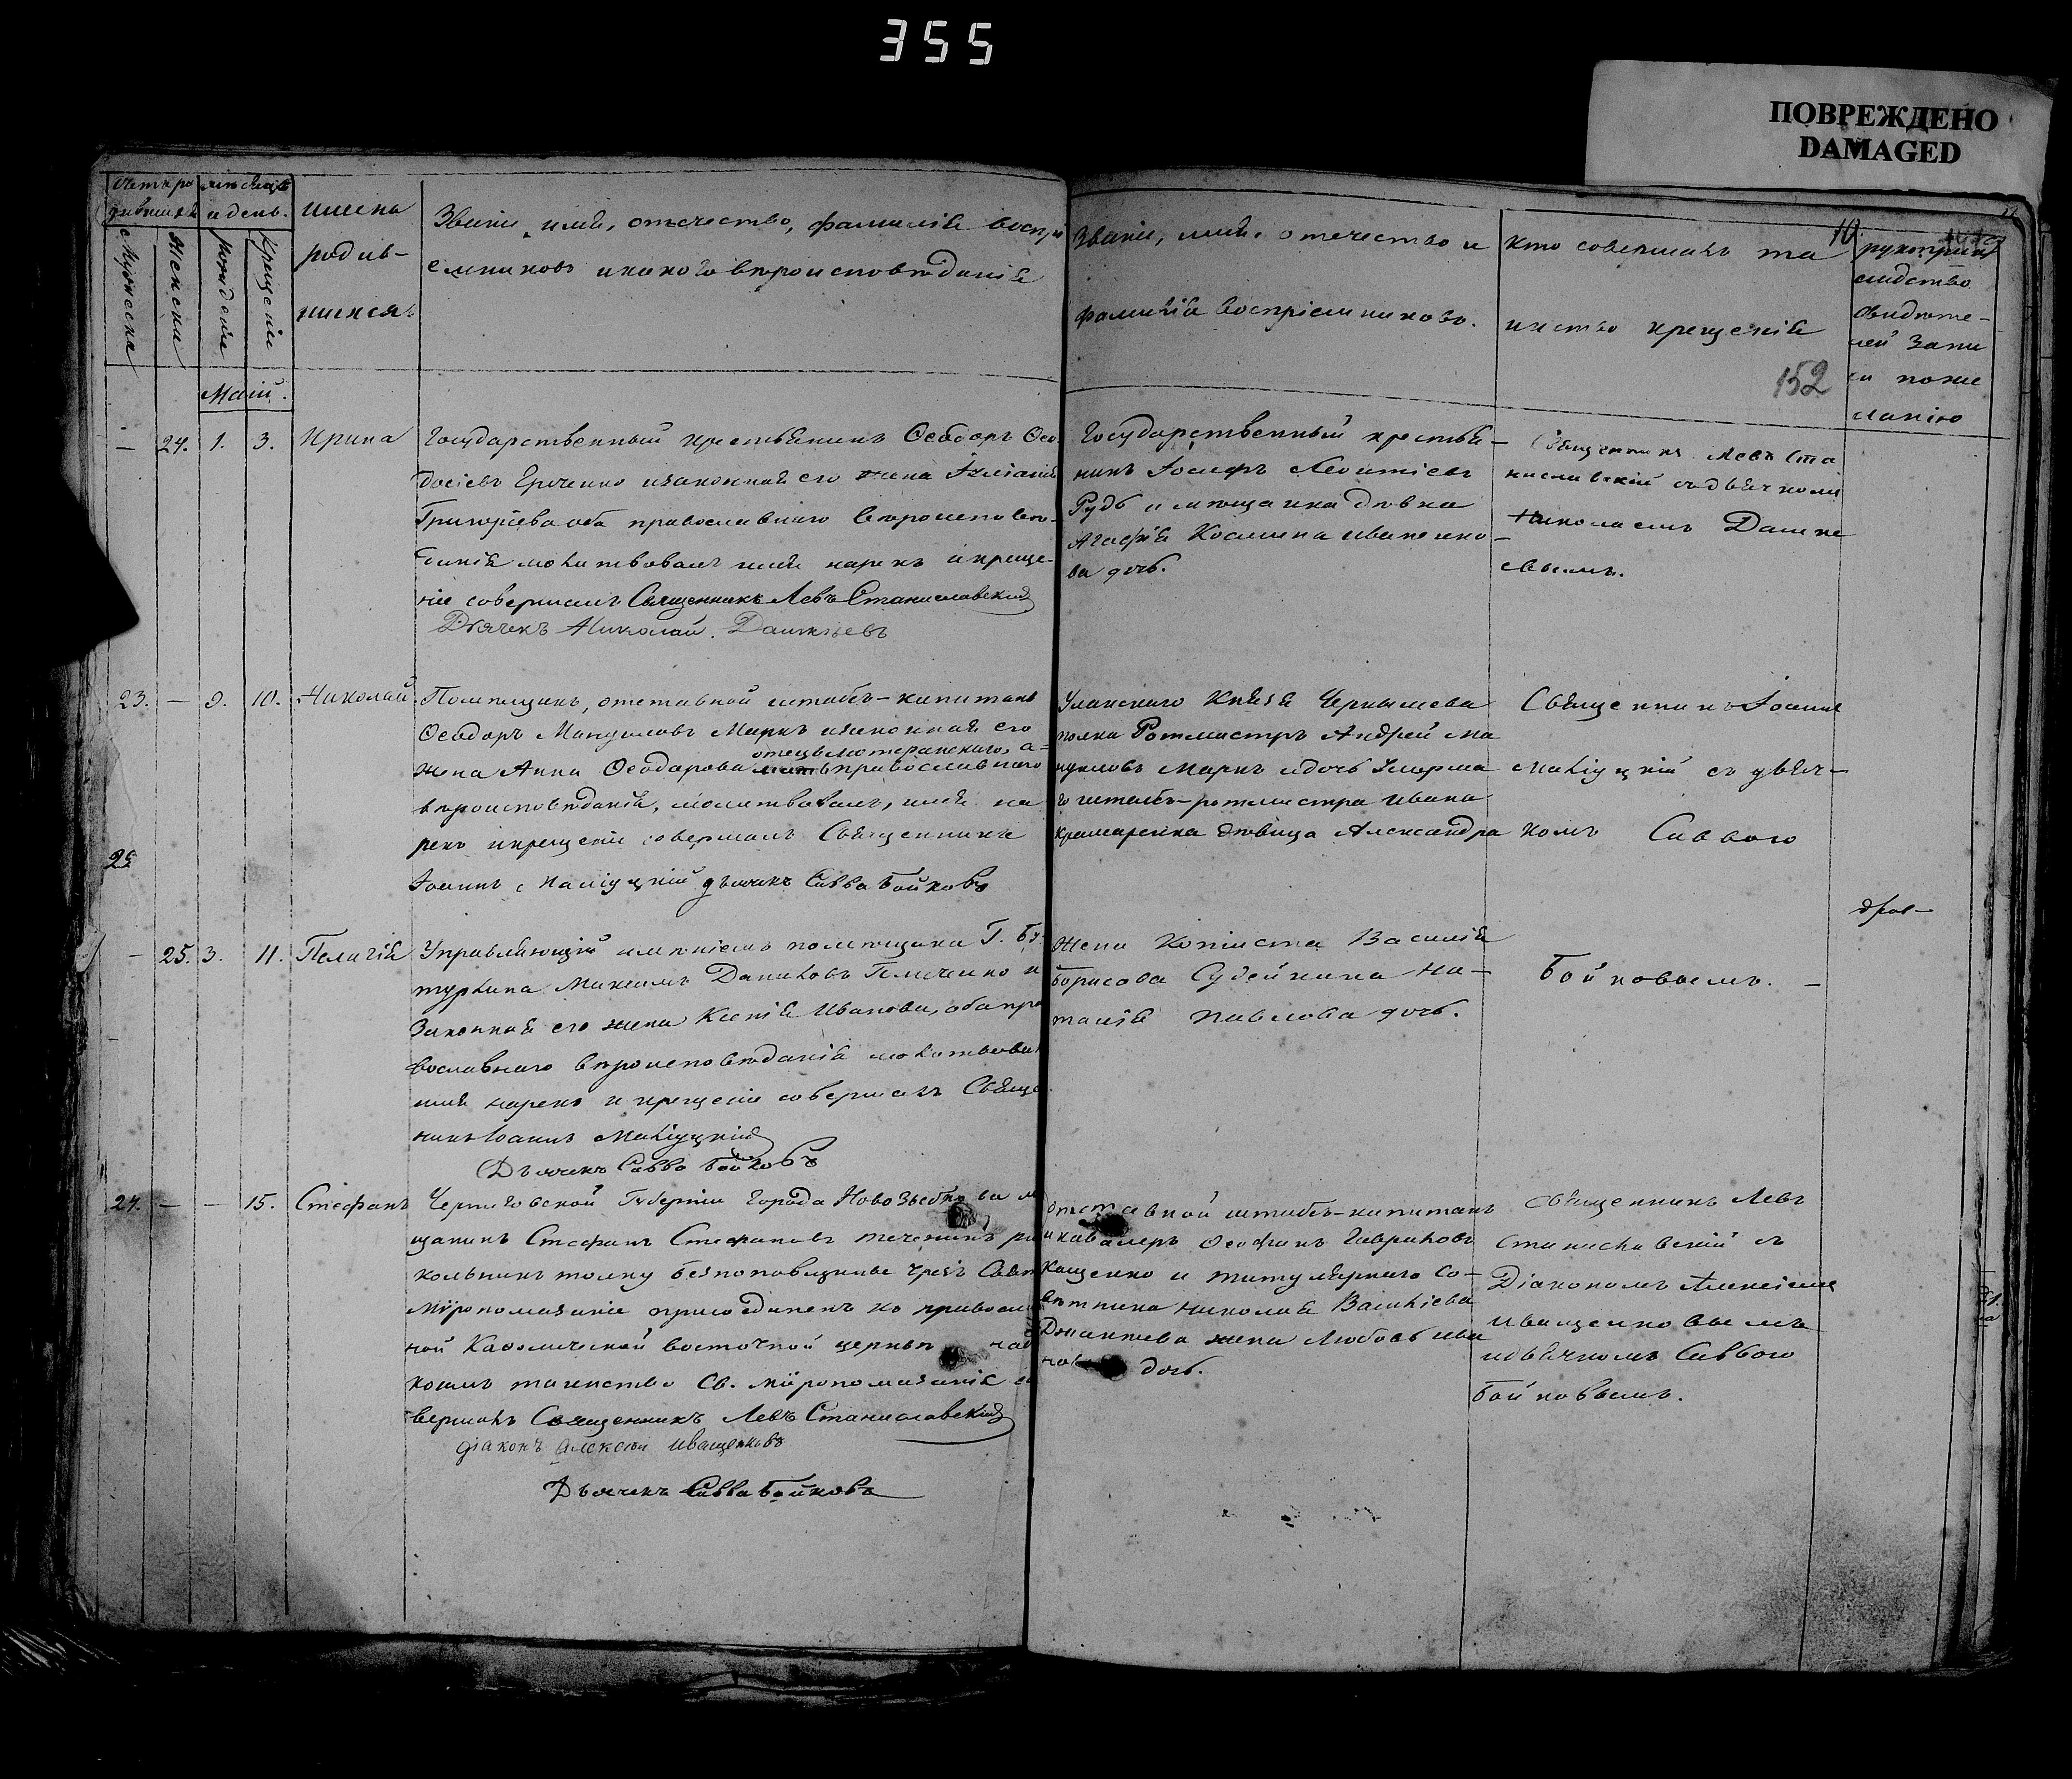 355
ПОВРЕЖДЕНО
DAMAGED
Счетъ ро
дившихся
мѣсяцъ
и день.
Мужеска
Женска
рожденія
Крещенія
имена
родив-
шихся.
Званіе, имя, отечество, фамилія воспрі
емниковъ и какого вѣроисповѣданія
Званіе, имя, отечество и
фамилія воспріемниковъ.
кто совершалъ та
инство крещенія
10.
152
рукоприк
свидѣте-
лей запи
си по же
ланію
Маій.
— 24. 1. 3. Ирина
Государственный крестьянинъ Ѳеодоръ Ѳео
досіевъ и законная его жена
Григоріева оба православнаго вѣроисповѣ-
данія молитвовалъ имя нарекъ и креще-
ніе совершалъ Священникъ Левъ Станиславскій
Дьячекъ Николай Дашкѣевъ
Государственный крестья-
нинъ Іосифъ Леонтіевъ
Рудь и мѣщанка дѣвка
Агафія Космина Иваненко-
ва дочь.
Священникъ Левъ Ста
ниславскій съ дьячкомъ
Николаемъ Дашке
евымъ.
23. — 9. 10. Николай.
Помѣщикъ, отставной штабсъ-капитанъ
Ѳеодоръ Мануиловъ Маркъ и законная его
отецъ лютеранскаго, а-
жена Анна Ѳеодорова мать православнаго
вѣроисповѣданія, молитвовалъ, имя на
рекъ и крещеніе совершалъ Священникъ
Іоаннъ дьячекъ Савва Бойковъ
Уланскаго Князя Чернышева
полка Ротмистръ Андрей Ма
нуиловъ Маркъ и дочь
штабсъ-ротмистра Ивана
Крамаренка дѣвица Александра
Священникъ Іоаннъ
съ дьяч-
комъ Саввою
25
— 25. 3. 11. Пелагія
Управляющій имѣніемъ помѣщика Г. Бу-
турлина Максимъ Даниловъ и
Законная его жена Ксенія Иванова, оба пра
вославнаго вѣроисповѣданія молитвовалъ
имя нарекъ и крещеніе совершалъ Свяще
никъ Іоаннъ
Дьячекъ Савва Бойковъ
Жена Копіиста Василія
Борисова Судейкина На-
талія Павлова дочь.
Бойковымъ. —
24. — — 15. Стефанъ
Черниговской Губерніи города Новозыбкова мѣ
щанинъ Стефанъ Стефановъ рас
кольникъ толку безпоповщины чрезъ Святое
Мѵропомазаніе присоединенъ къ православ
ной Каѳолической восточной церкви над
коимъ таинство Св. Мѵропомазанія со
вершалъ Священникъ Левъ Станиславскій
діаконъ Алексѣй Иващенковъ
Дьячекъ Савва Бойковъ
Отставной штабсъ-капитанъ
и кавалеръ Ѳеофанъ Гавриловъ
Кащенко и титулярнаго со-
вѣтника Николая Васильева
жена Любовь Ива
нова дочь.
Священникъ Левъ
Станиславскій съ
Діакономъ Алексѣемъ
Иващенковымъ
и дьячкомъ Саввою
Бойковымъ.